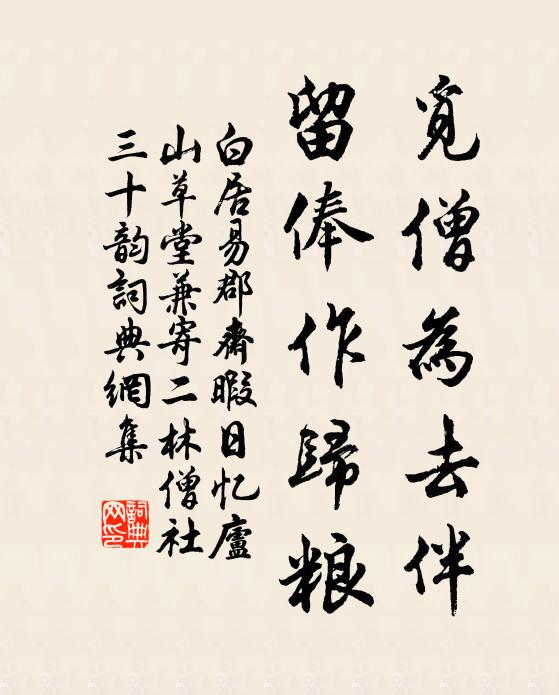 覓僧為去伴
留俸作歸粮
白居易郡齋暇日忆廬
山草堂兼寄二林僧社
三十韵詞典網集
詞典
网印